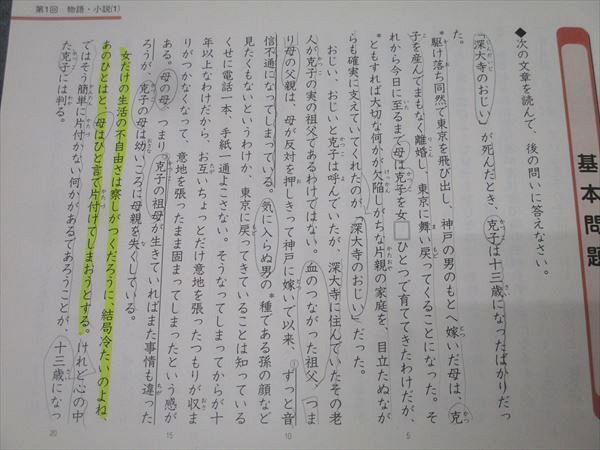 第1回　物語・小説(1)
基本問題
◆次の文章を読んで、後の問いに答えなさい。
「深大寺のおじい」が死んだとき、克子は十三歳になったばかりだっ
た。
*駆け落ち同然で東京を飛び出し、神戸の男のもとへ嫁いだ母は、克
子を産んでまもなく離婚し、東京に舞い戻ってくることになった。そ
れから今日に至るまで母は克子を女□ひとつで育ててきたわけだが、
*ともすれば大切な何かが欠陥しがちな片親の家庭を、目立たぬなが
らも確実に支えていてくれたのが「深大寺のおじい」だった。
おじい、おじいと克子は呼んでいたが、深大寺に住んでいたその老
人が克子の実の祖父であるわけではない。血のつながった祖父、つま
り母の父親は、母が反対を押しきって神戸に嫁いで以来、ずっと音
信不通になってしまっている。気に入らぬ男の*種である孫の顔など
見たくもないというわけか、東京に戻ってきていることは知っている
くせに電話一本、手紙一通よこさない。そうなってしまってからが十
年以上なわけだから、お互いちょっとだけ意地を張ったつもりが収ま
りがつかなくなって、意地を張ったまま固まってしまったという感が
ある。母の母、つまり克子の祖母が生きていればまた事情も違った
ろうが、克子の母は幼いころに母親を失くしている。
女だけの生活の不自由さは察しがつくだろうに、結局冷たいのよね
あのひとはと、母はひと言で片付けてしまおうとする。けれど心の中
ではそう簡単に片付かない何かがあるであろうことが、十三歳になっ
た克子には判る。
5
10
15
20